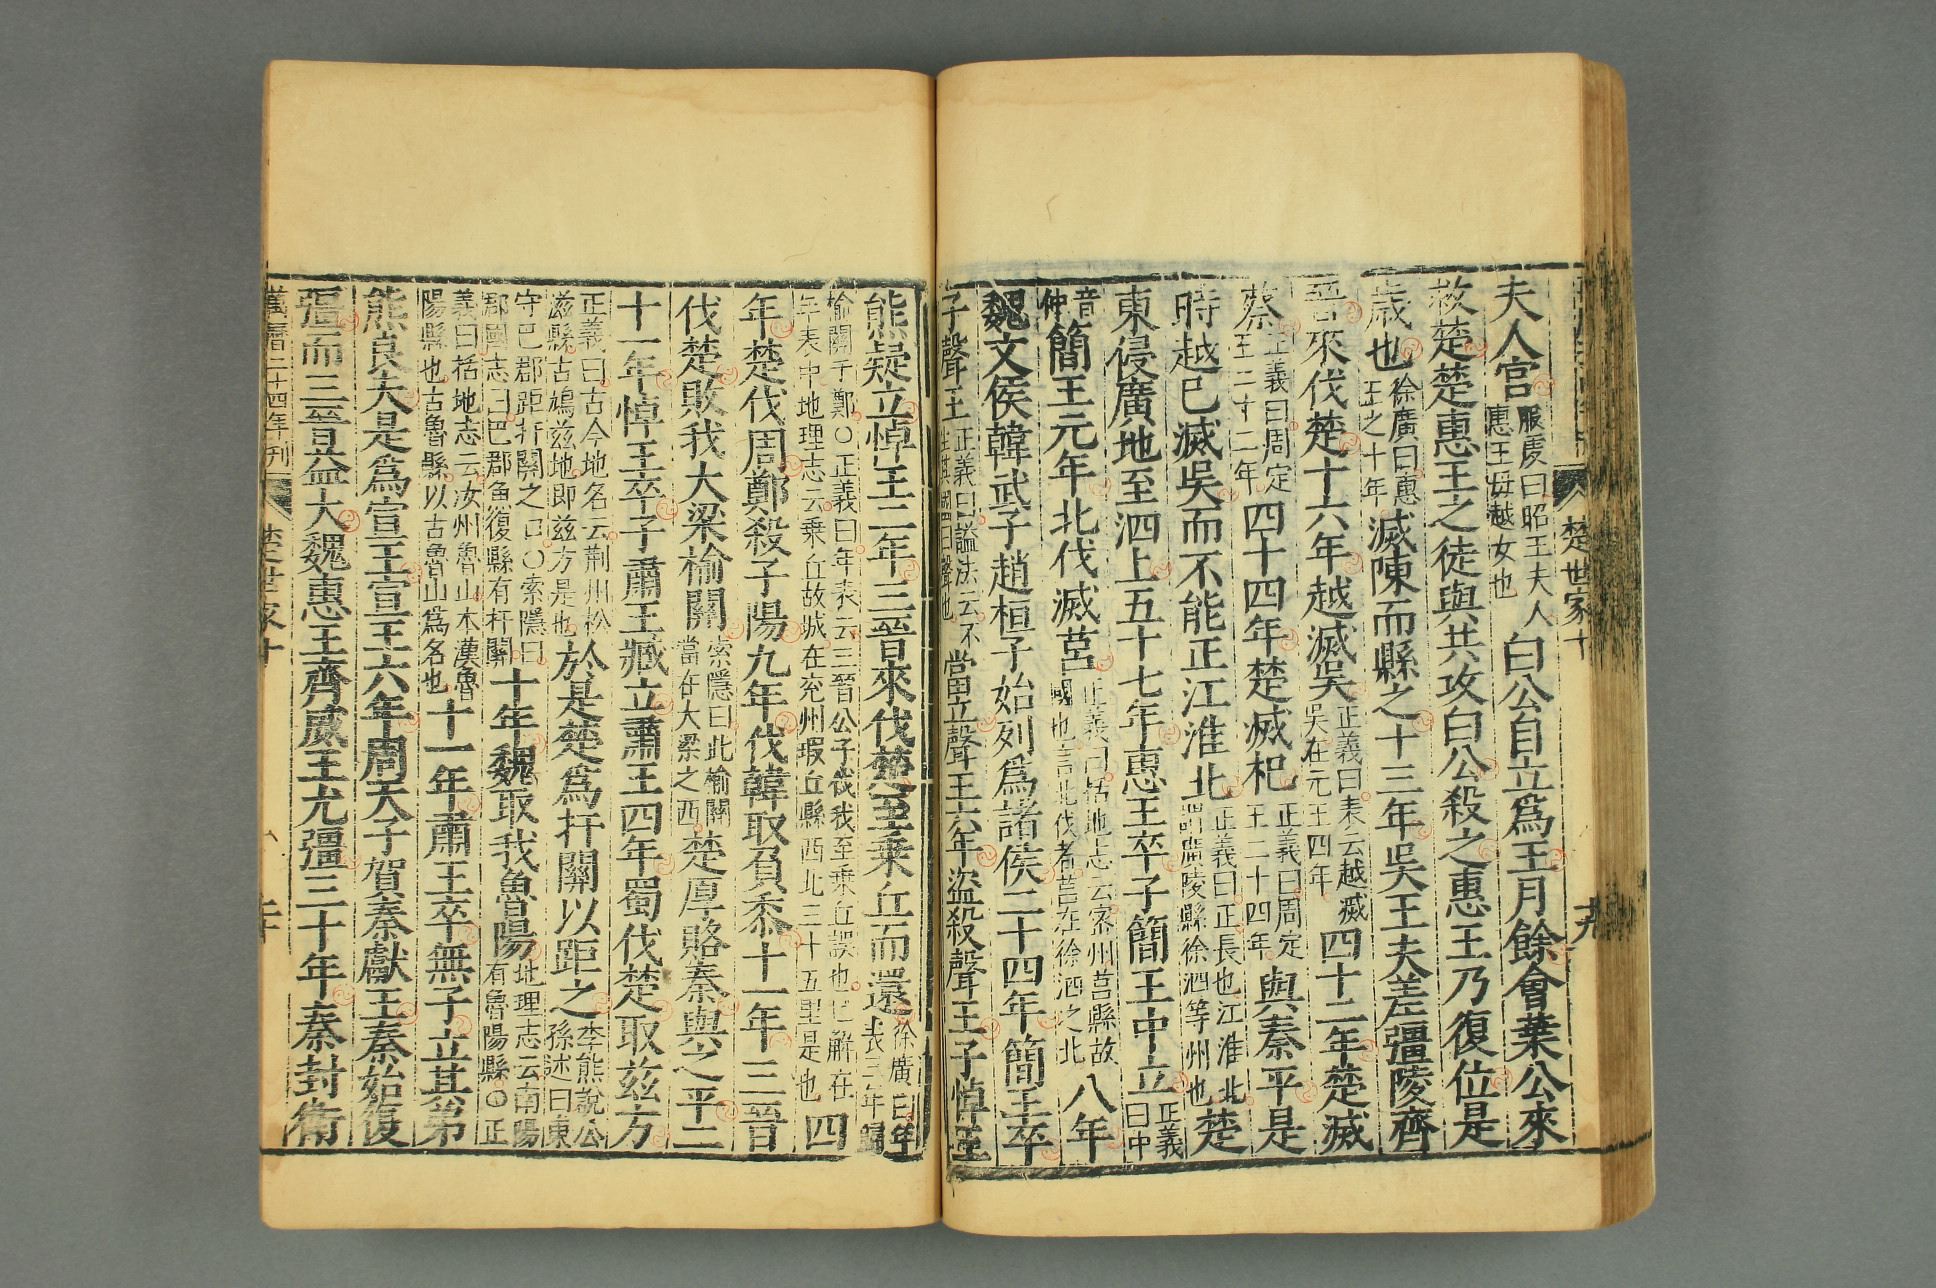 楚世家十
十九
夫人宮服虔曰昭王夫人惠王母越女也白公自立爲王月餘會葉公來
救楚楚惠王之徒與共攻白公殺之惠王乃復位是
歲也徐廣曰惠王之十年滅陳而縣之十三年吳王夫差彊陵齊
晉來伐楚十六年越滅吳正義曰表云越滅吳在元王四年四十二年楚滅
蔡正義曰周定王二十二年四十四年楚滅杞正義曰周定王二十四年與秦平是
時越已滅吳而不能正江淮北正義曰正長也江淮北謂廣陵縣徐泗等州也楚
東侵廣地至泗上五十七年惠王卒子簡王中立正義曰中
音仲簡王元年北伐滅莒正義曰括地志云密州莒縣故國也言北伐者莒在徐泗之北八年
魏文侯韓武子趙桓子始列爲諸侯二十四年簡王卒
子聲王正義曰謚法云不生其國曰聲也當立聲王六年盜殺聲王子悼王
熊疑立悼王二年三晉來伐楚至乘丘而還徐廣曰年表三年歸
榆關于鄭○正義曰年表云三晉公子伐我至乘丘誤也已解在年表中地理志云乘丘故城在兖州瑕丘縣西北三十五里是也四
年楚伐周鄭殺子陽九年伐韓取負黍十一年三晉
伐楚敗我大梁榆關索隱曰此榆關當在大梁之西楚厚賂秦與之平二
十一年悼王卒子肅王臧立肅王四年蜀伐楚取兹方
正義曰古今地名云荆州松滋縣古鳩兹地即兹方是也於是楚爲扞關以距之李熊說公孫述曰東
守巴郡距扞關之口○索隱曰郡國志曰巴郡魚復縣有扞關十年魏取我魯陽地理志云南陽有魯陽縣○正
義曰括地志云汝州魯山本漢魯陽縣也古魯縣以古魯山爲名也十一年肅王卒無子立其弟
熊良夫是爲宣王宣王六年周天子賀秦獻王秦始復
彊而三晉益大魏惠王齊威王尤彊三十年秦封衛
萬曆二十四年刊
楚世家十
二十